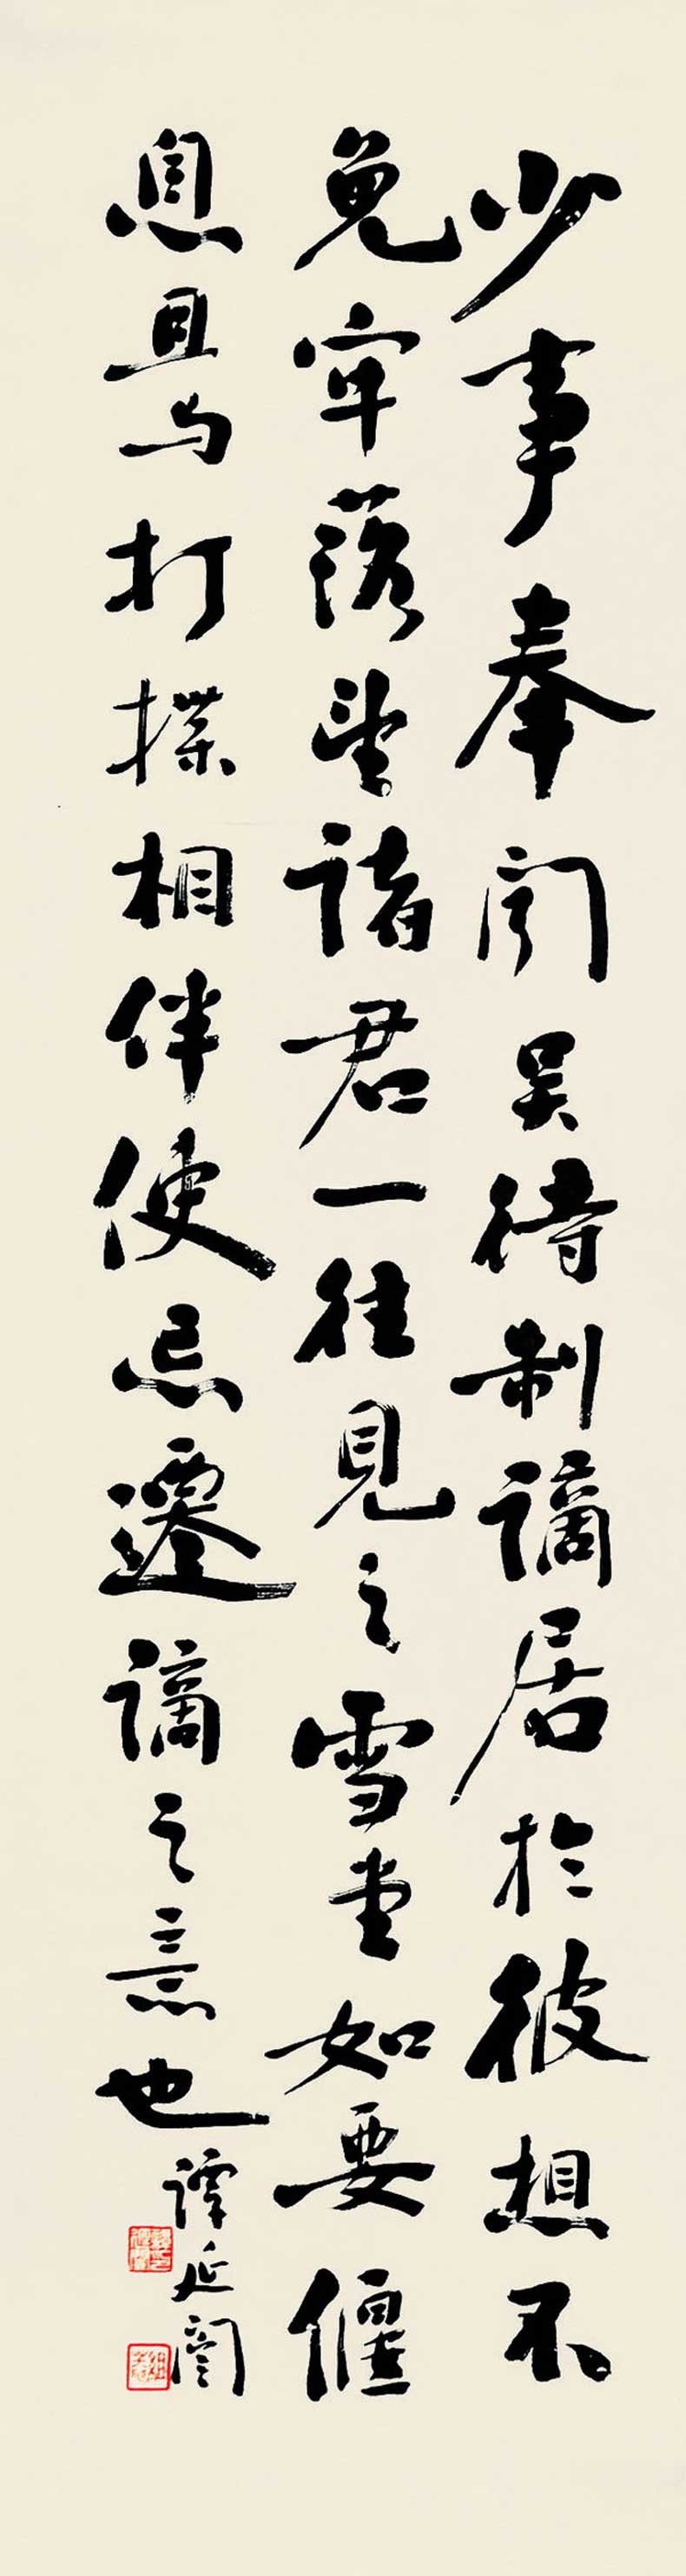 少事奉聞吳待制謫居於彼想不
免牢落望諸君一往見之雪堂如要偃
息且与打揲相伴使忘遷謫之意也
譚延闓